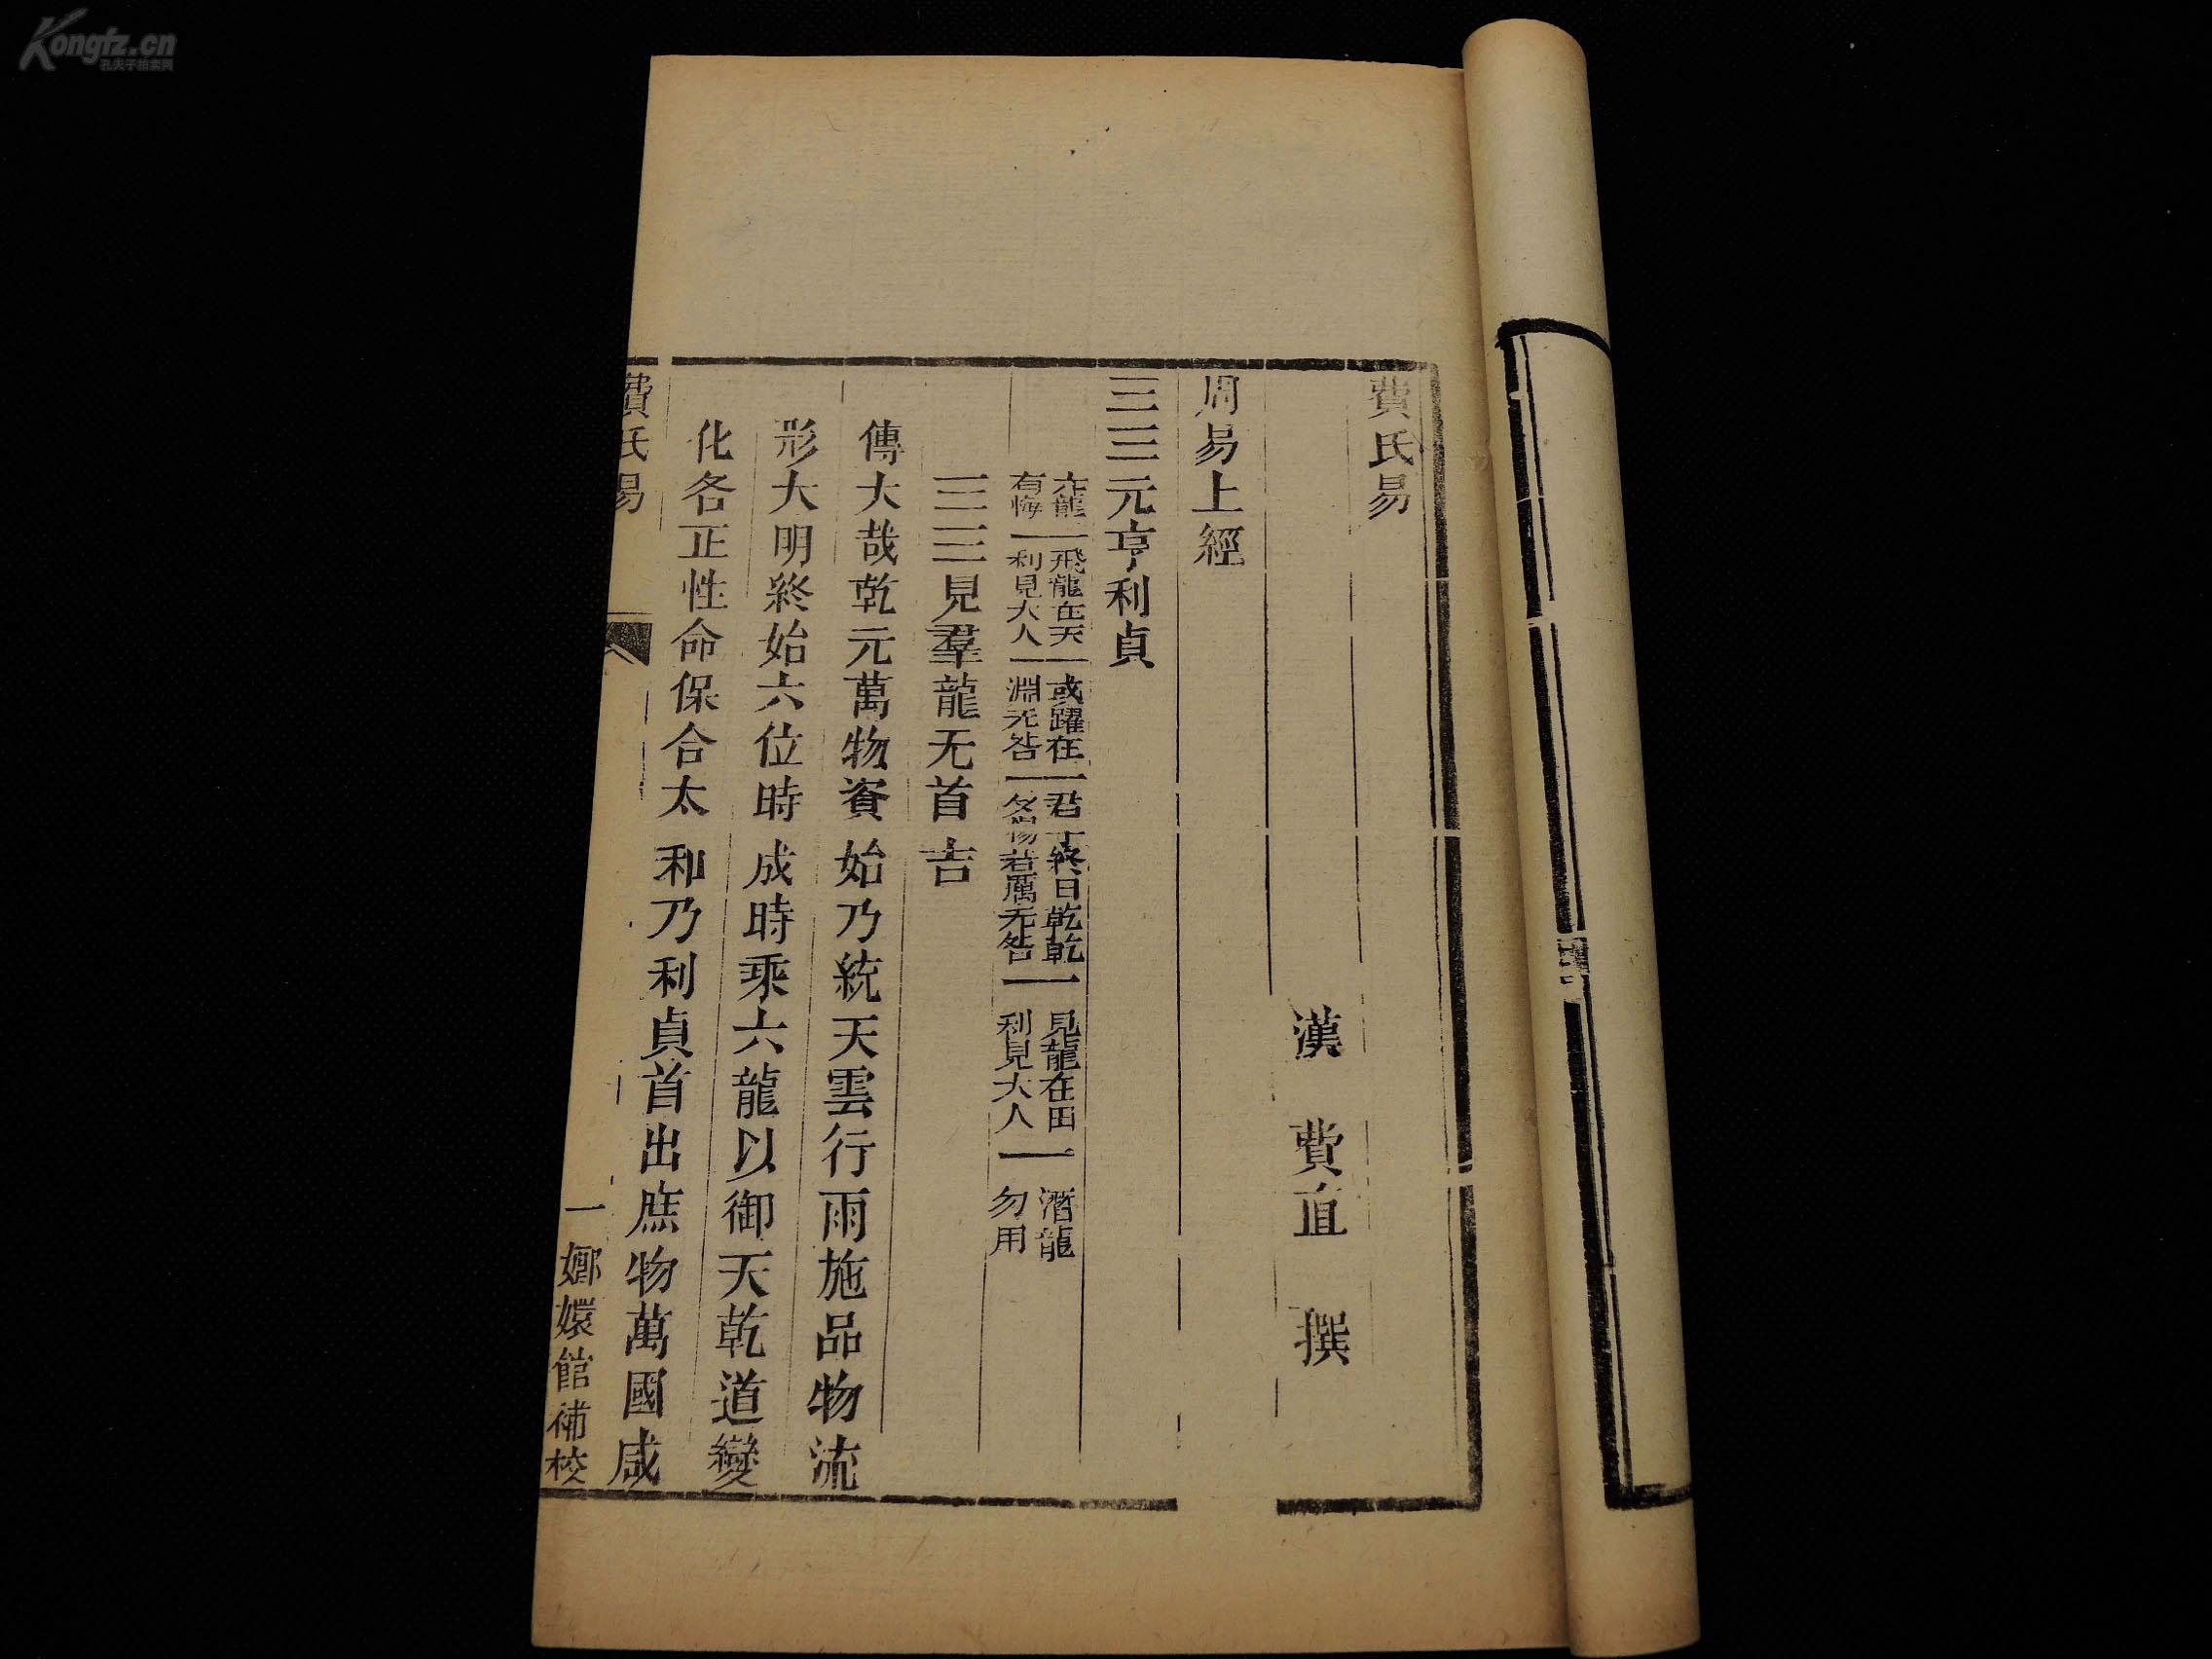 Kongfz.cn
孔夫子拍卖网
費氏易
漢 費直 撰
周易上經
䷀元亨利貞
亢龍有悔一飛龍在天利見大人一或躍在淵无咎一君子終日乾乾夕惕若厲无咎一見龍在田利見大人一潛龍勿用
䷀見羣龍无首吉
傳大哉乾元萬物資始乃統天雲行雨施品物流
形大明終始六位時成時乘六龍以御天乾道變
化各正性命保合太和乃利貞首出庶物萬國咸
費氏易
一
嫏嬛館補校